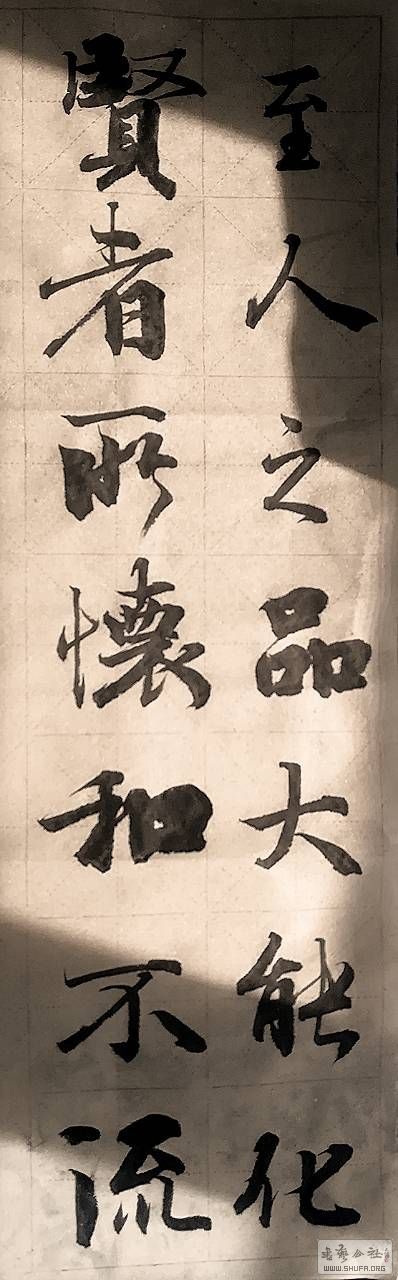 至人之品大能化
賢者所懷和不流
書藝公社
WWW.SHUFA.ORG